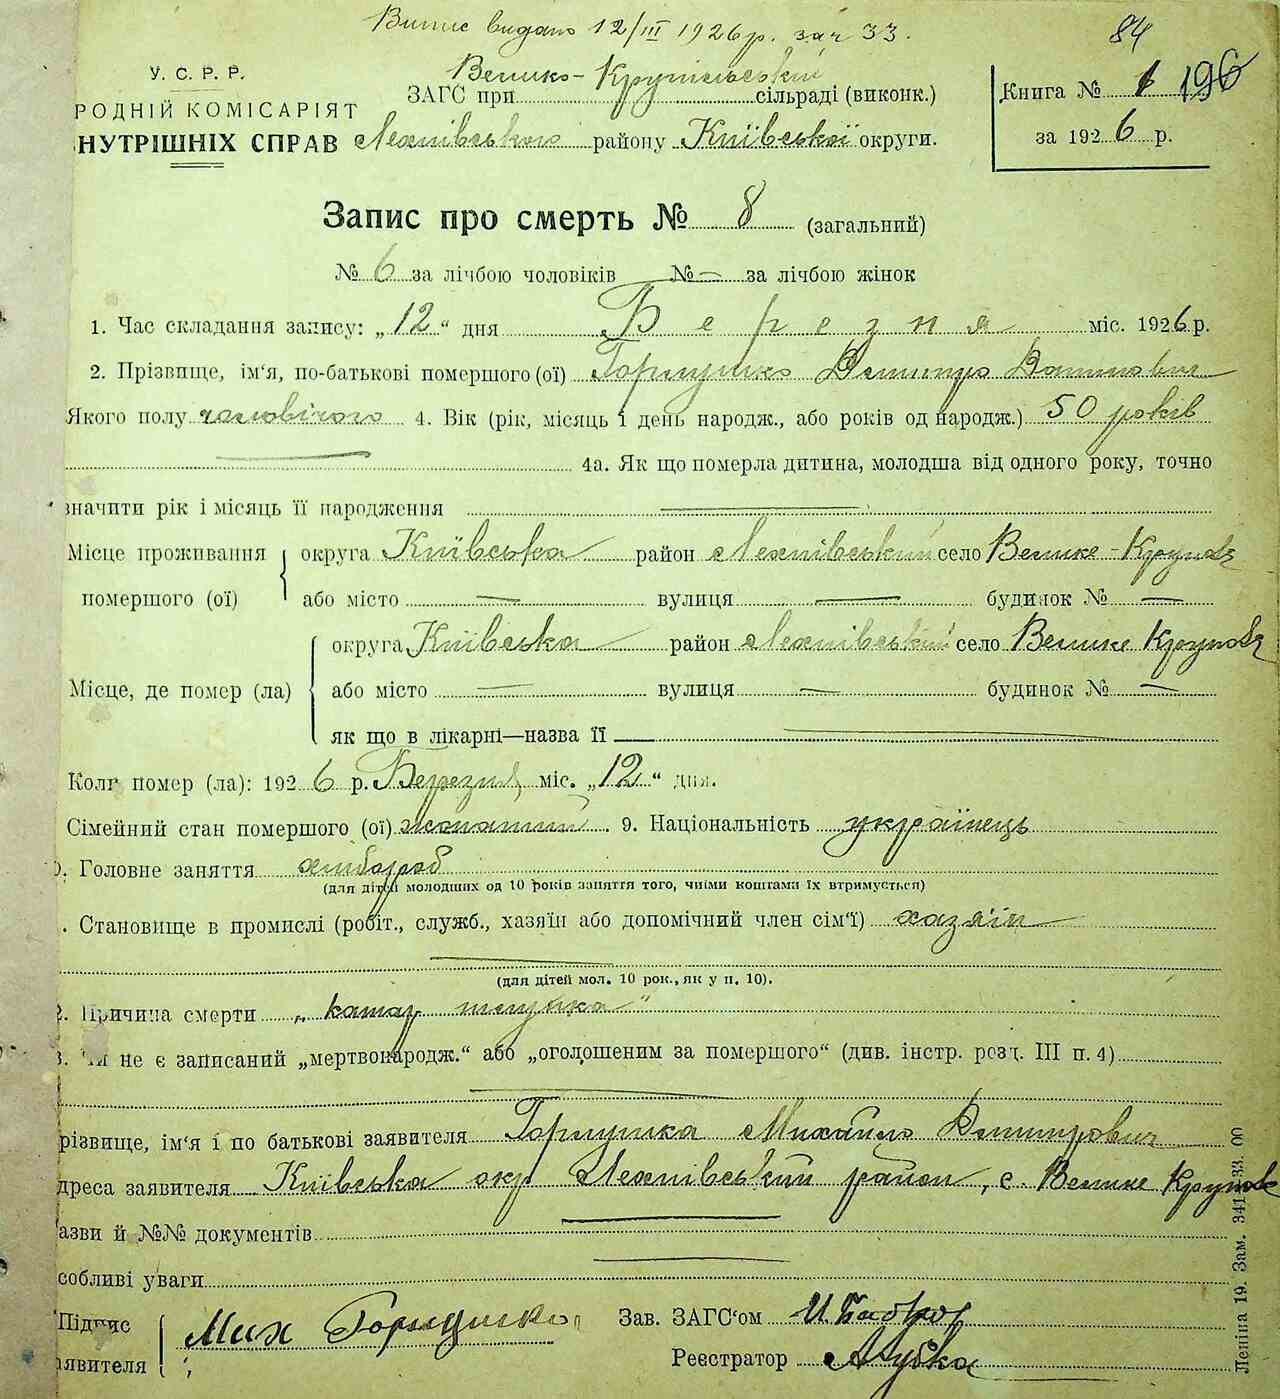 Випис видано 12/III 1926 р. зач 33.
84
У. С. Р. Р.
РОДНІЙ КОМІСАРІЯТ
НУТРІШНІХ СПРАВ
Велико-Крупільський
ЗАГС при сільраді (виконк.)
району Київської округи.
Книга № 1 196
за 1926 р.
Запис про смерть № 8 (загальний)
№ 6 за лічбою чоловіків № — за лічбою жінок
1. Час складання запису: „12“ дня Березня міс. 1926 р.
2. Прізвище, ім‘я, по-батькові помершого (ої) Дмитро
Якого полу чоловічого 4. Вік (рік, місяць і день народж., або років од народж.) 50 років
4а. Як що померла дитина, молодша від одного року, точно
значити рік і місяць її народження
Місце проживання округа Київська район село Велике-Крупол
помершого (ої) або місто — вулиця — будинок № —
округа Київська район село Велике Крупол
Місце, де помер (ла) або місто — вулиця — будинок № —
як що в лікарні—назва її
Коли помер (ла): 1926 р. Березня міс. „12“ дня.
Сімейний стан помершого (ої) жонатий. 9. Національність українець
Головне заняття хлібороб
(для дітей молодших од 10 років заняття того, чиїми коштами їх втримується)
. Становище в промислі (робіт., служб., хазяїн або допомічний член сім‘ї) хазяїн
(для дітей мол. 10 рок., як у п. 10).
2. Причина смерти „катар шлунка“
3. Чи не є записаний „мертвонародж.“ або „оголошеним за помершого“ (див. інстр. розд. III п. 4)
різвище, ім‘я і по батькові заявителя Михайло Дмитрович
дреса заявителя Київська окр район, с. Велике Крупол
азви й №№ документів
собливі уваги
Підпис Мих Зав. ЗАГС‘ом
аявителя Реєстратор
Леніна 19. Зам.